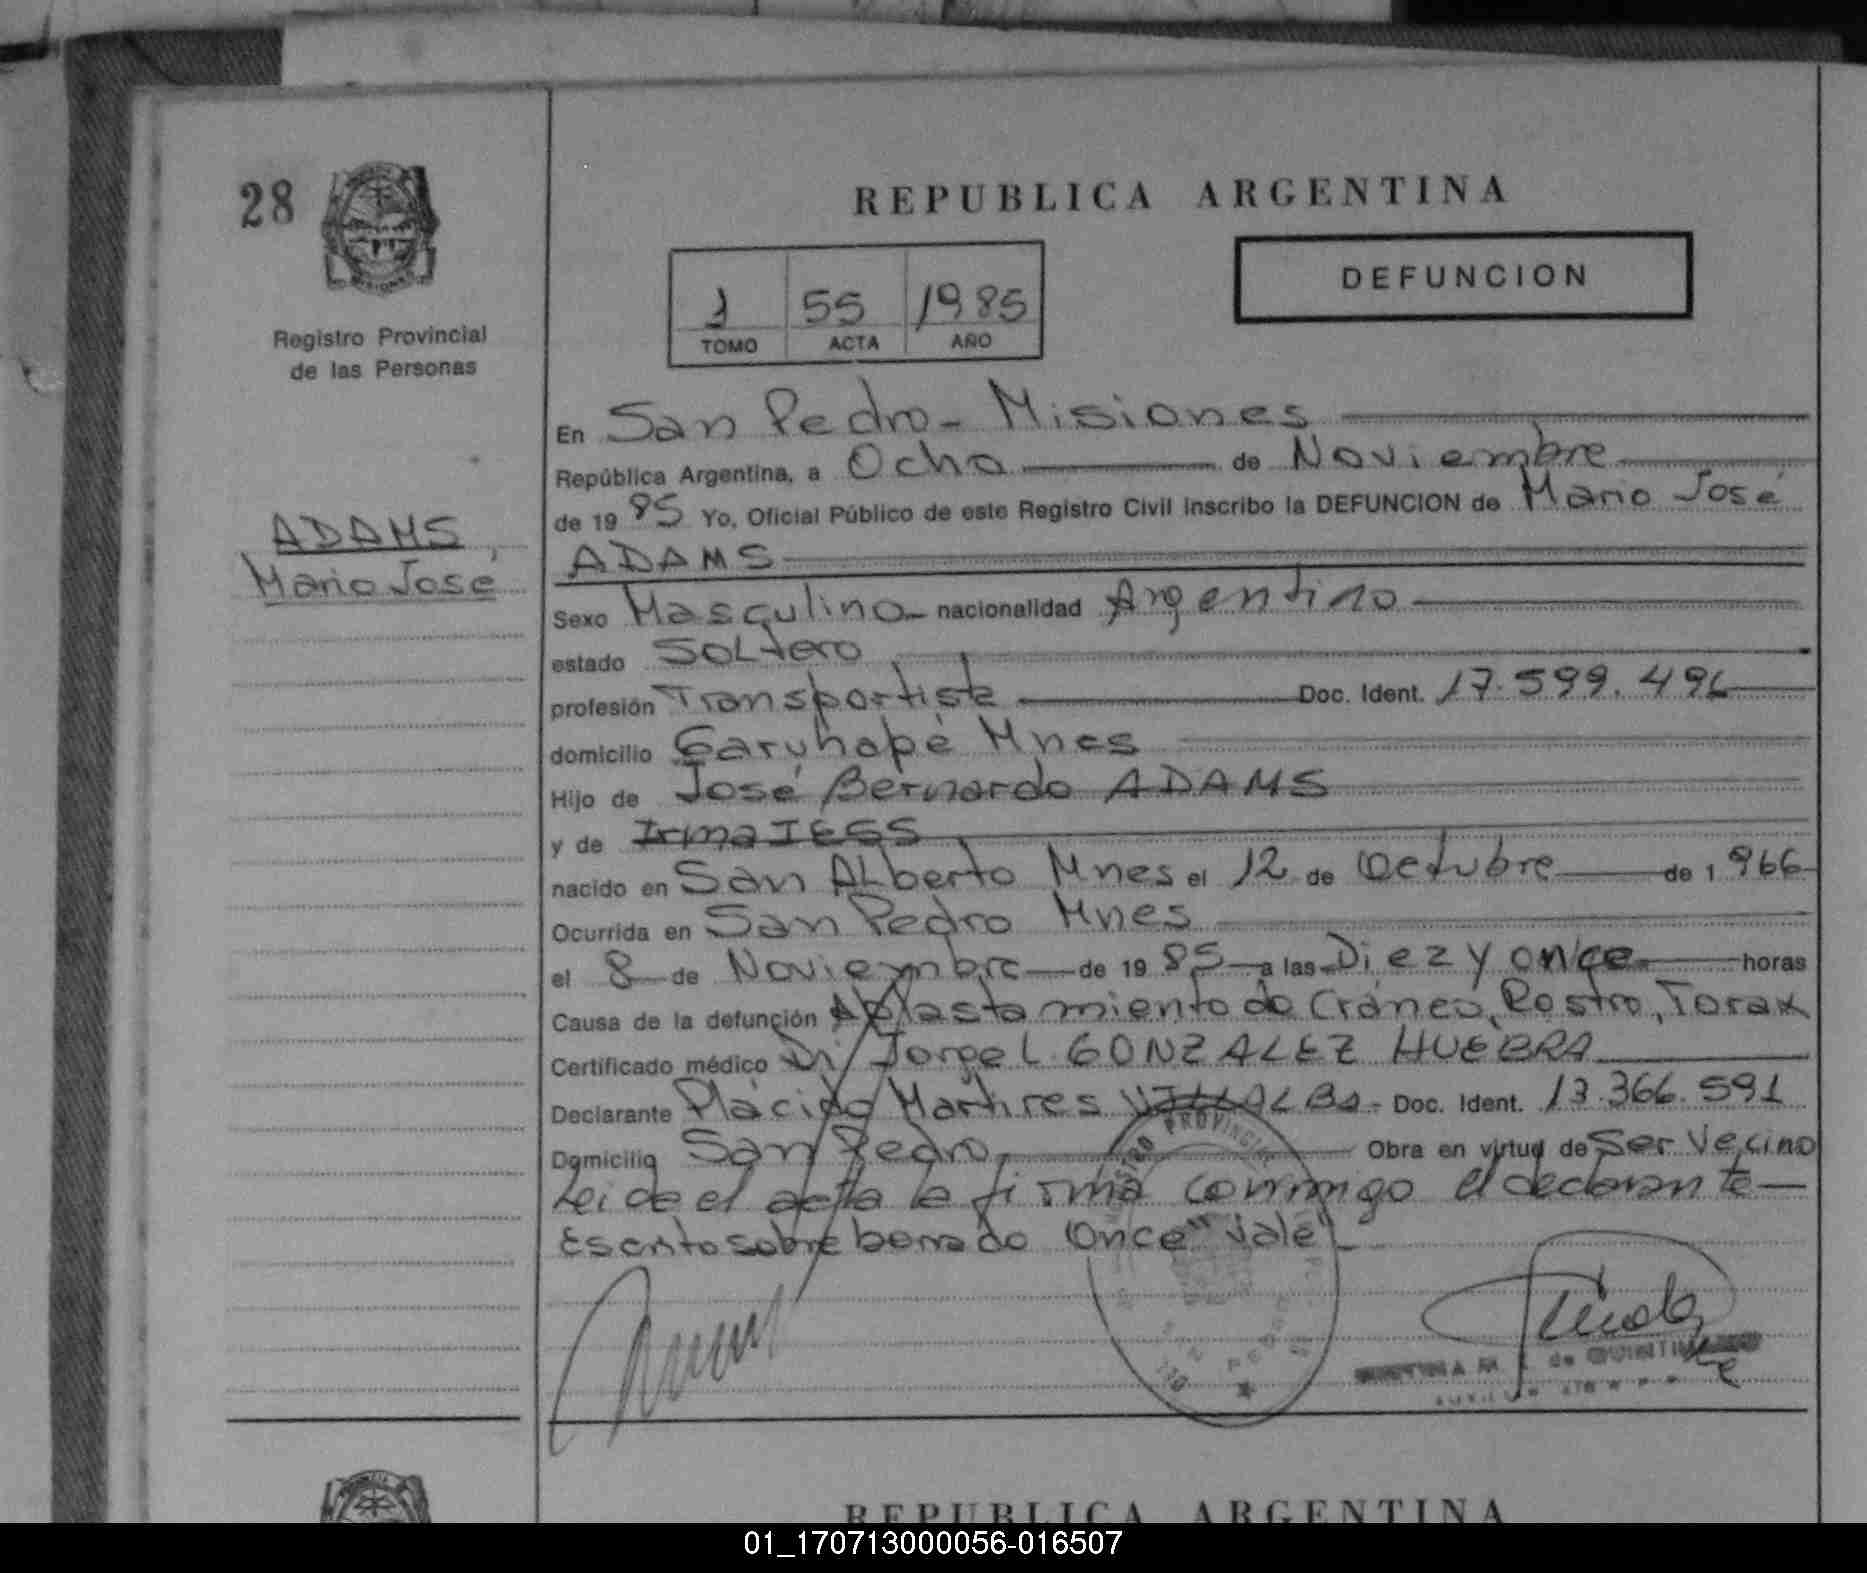 28
REPUBLICA ARGENTINA
DEFUNCION
1 55 1985
TOMO ACTA AÑO
Registro Provincial
de las Personas
ADAMS,
Mario José
En San Pedro - Misiones
República Argentina, a Ocho de Noviembre
de 1985 Yo, Oficial Público de este Registro Civil inscribo la DEFUNCION de Mario José
ADAMS
Sexo Masculino nacionalidad Argentino
estado Soltero
profesión Transportista Doc. Ident. 17.599.496
domicilio Garuhapé Mnes
Hijo de José Bernardo ADAMS
y de Irma IESS
nacido en San Alberto Mnes el 12 de Octubre de 1966
Ocurrida en San Pedro Mnes
el 8 de Noviembre de 1985 a las Diez y once horas
Causa de la defunción Aplastamiento de Cráneo, Rostro, Torax
Certificado médico Dr Jorge L. GONZALEZ HUEBRA
Declarante Plácido Martires VILLALBA - Doc. Ident. 13.366.591
Domicilio San Pedro Obra en virtud de Ser Vecino
Leida el acta la firma conmigo el declarante
Escrito sobre borrado Once "Vale"
PROVINCIAL
SAN PEDRO
de QUINTI
REPUBLICA ARGENTINA
01_170713000056-016507